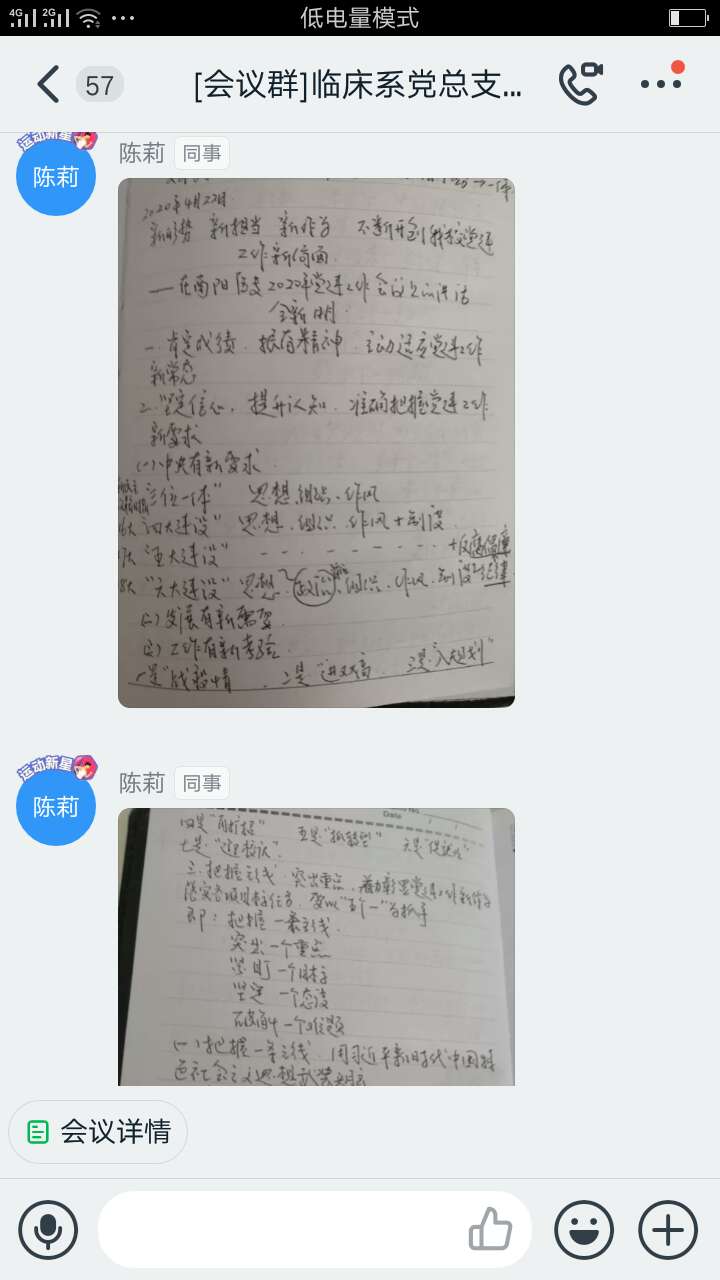 4G 2G 低电量模式
57 [会议群]临床系党总支...
运动新星
陈莉
陈莉 同事
2020年4月22日
新形势 新担当 新作为 不断开创我校党建
工作新局面
——在南阳医专2020年党建工作会议上的讲话
一.肯定成绩.振奋精神.主动适应党建工作
新常态
二.坚定信心,提升认知.准确把握党建工作
新要求
(一)中央有新要求.
"三位一体" 思想.组织.作风
"四大建设" 思想.组织.作风+制度
"五大建设"
"六大建设" 思想.政治 组织.作风.制度 纪律
(二)发展有新需要.
(三)工作有新考验.
一是"战疫情 二是"进双高 三是"入规划"
运动新星
陈莉
陈莉 同事
Date
四是 五是 六是
七是
三.把握主线.突出重点.
落实各项目标任务.要以"五个一"为抓手
即:把握一条主线.
突出一个重点
紧盯一个目标
坚定一个态度
破解一个难题
(一)把握一条主线.用习近平新时代中国特
色社会主义思想武装
会议详情